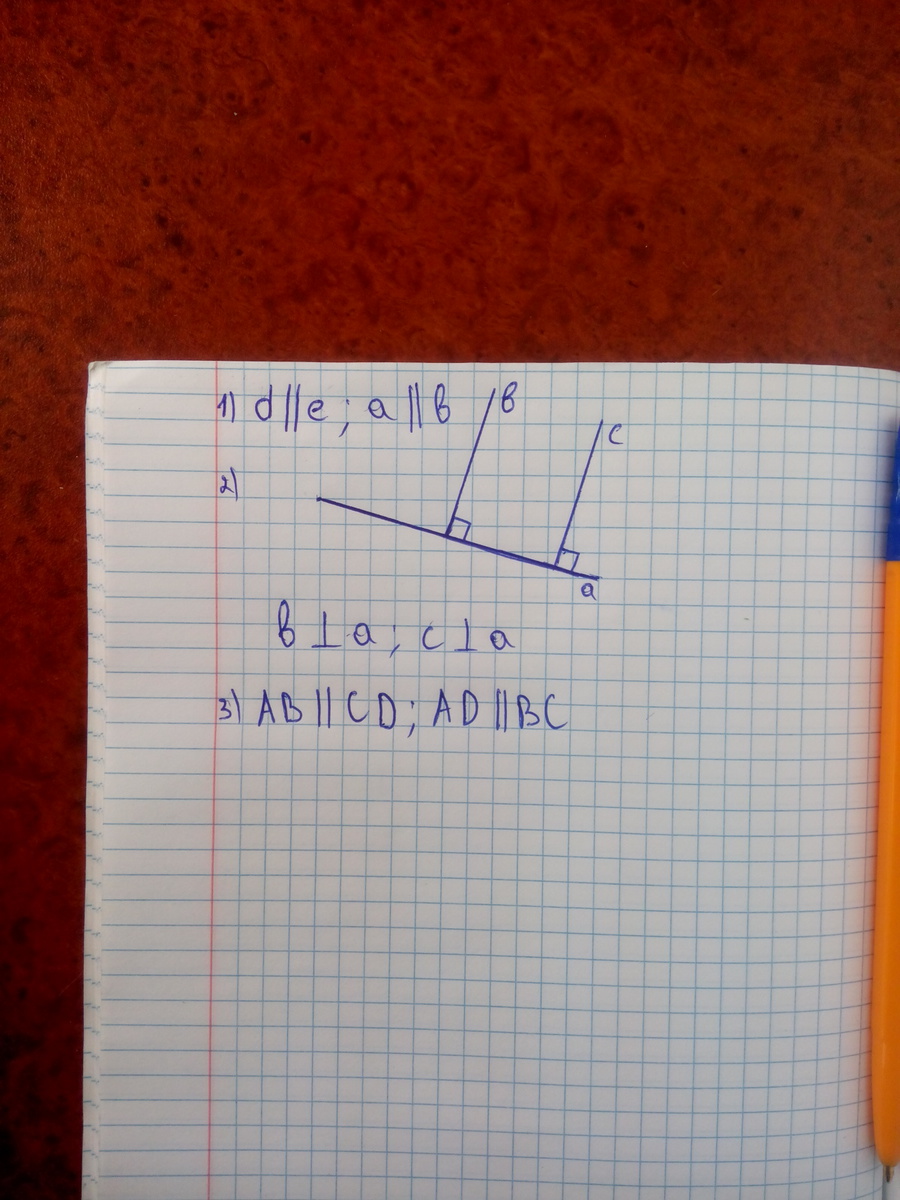 1) d||e; a||в
в
c
2)
a
в⊥a; c⊥a
3) AB||CD; AD||BC